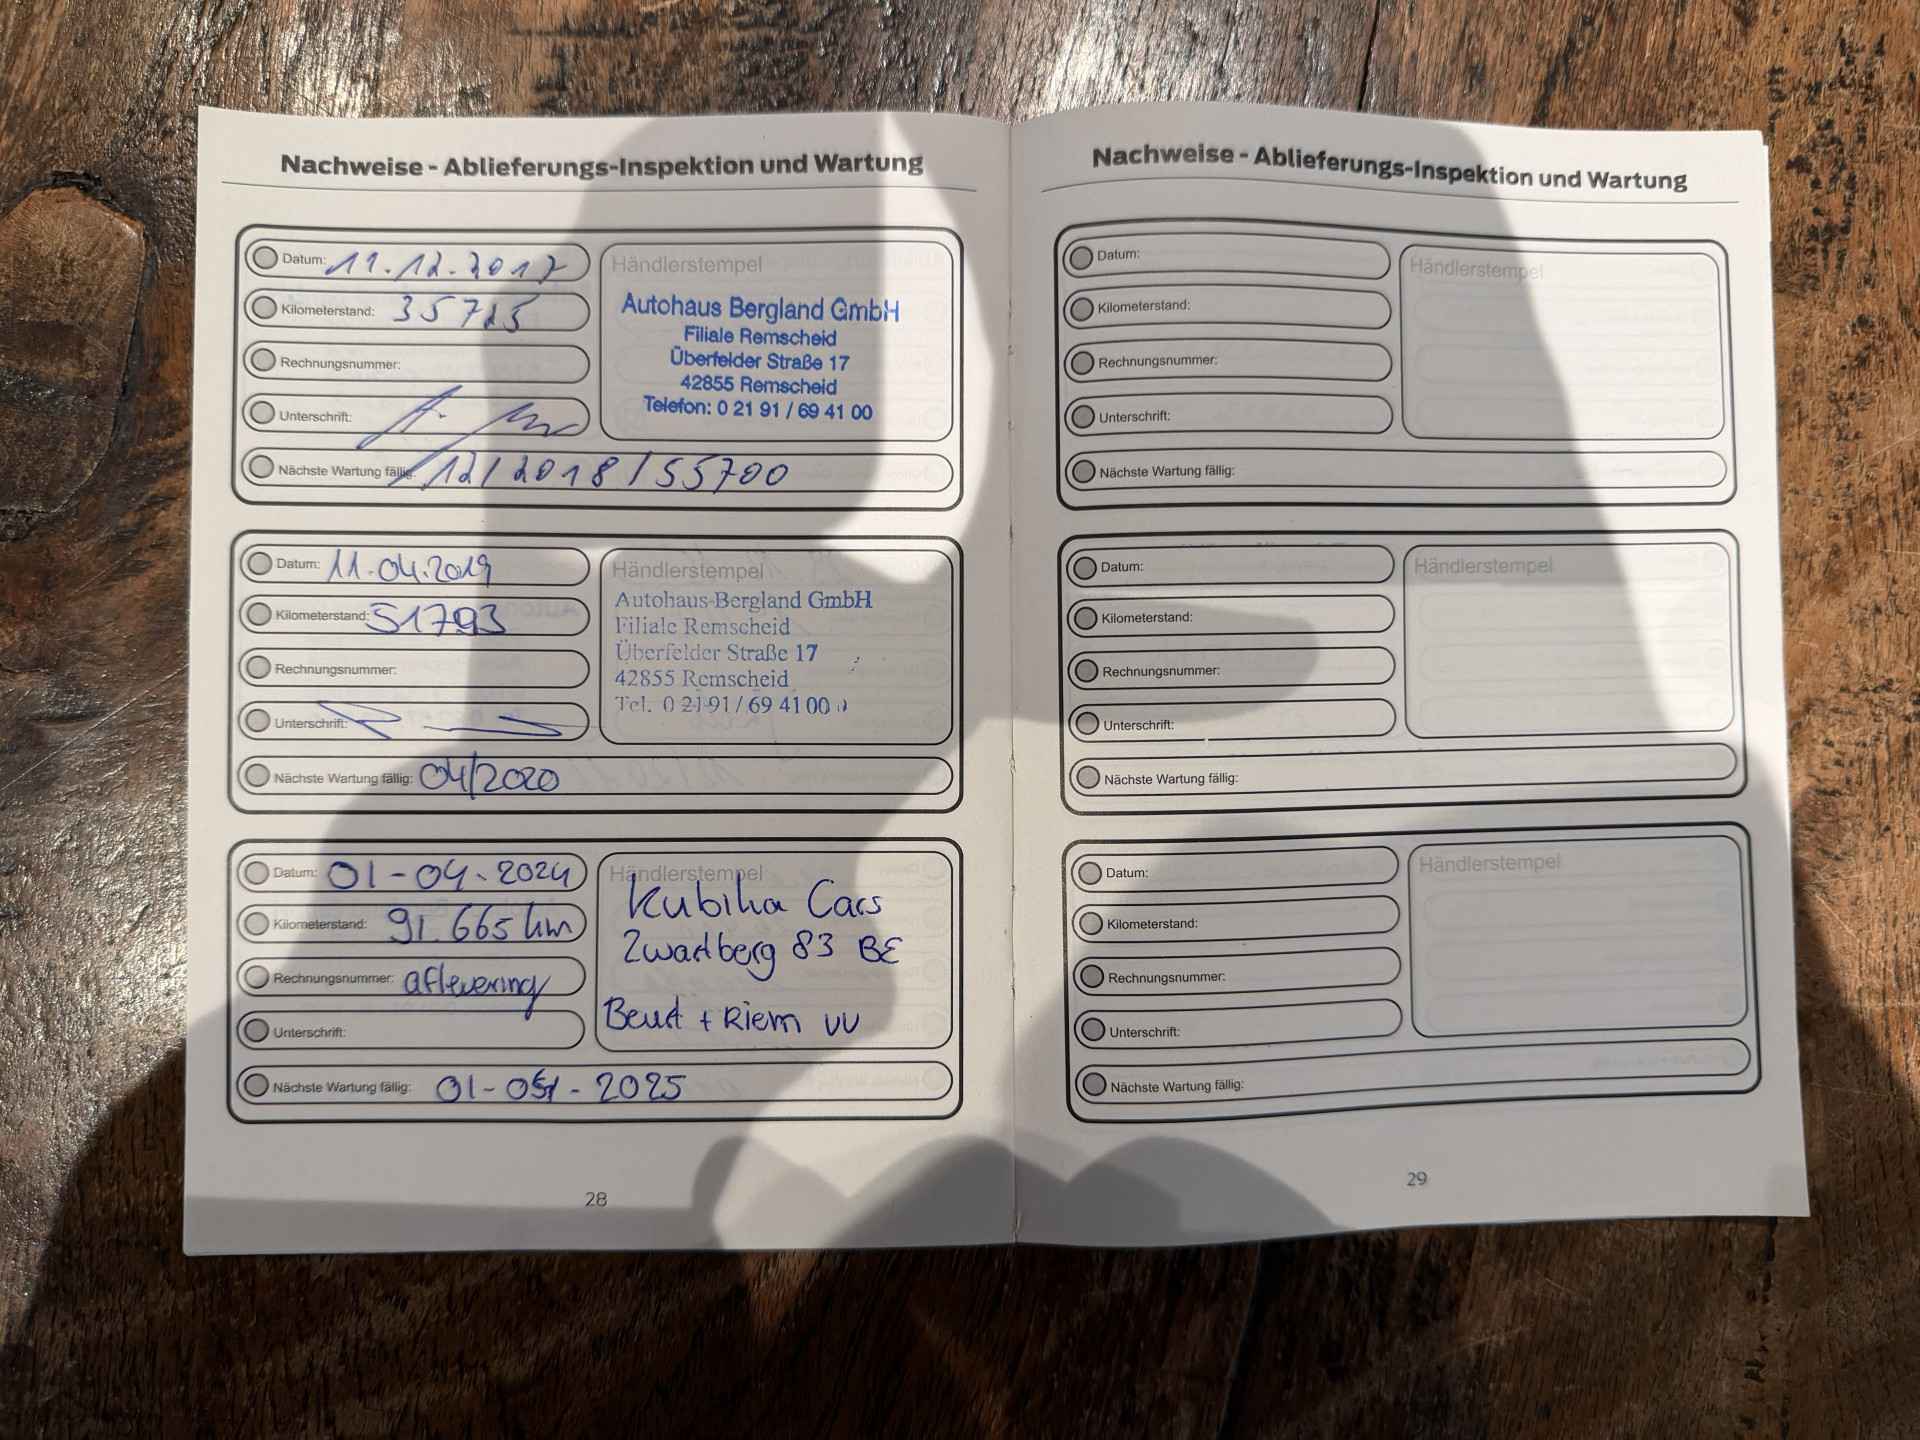 Nachweise - Ablieferungs-Inspektion und Wartung
Datum: 11.12.2017
Kilometerstand: 35725
Rechnungsnummer:
Unterschrift:
Nächste Wartung fällig: 12/2018/55700
Händlerstempel
Autohaus Bergland GmbH
Filiale Remscheid
Überfelder Straße 17
42855 Remscheid
Telefon: 0 21 91 / 69 41 00
Datum: 11.04.2019
Kilometerstand: 51793
Rechnungsnummer:
Unterschrift:
Nächste Wartung fällig: 04/2020
Händlerstempel
Autohaus Bergland GmbH
Filiale Remscheid
Überfelder Straße 17
42855 Remscheid
Tel. 0 21 91 / 69 41 00
Datum: 01-04-2024
Kilometerstand: 91.665 km
Rechnungsnummer: aflevering
Unterschrift:
Nächste Wartung fällig: 01-04-2025
Händlerstempel
Kubilia Cars
Zwartberg 83 BE
+ Riem VV
28
Nachweise - Ablieferungs-Inspektion und Wartung
Datum:
Kilometerstand:
Rechnungsnummer:
Unterschrift:
Nächste Wartung fällig:
Händlerstempel
Datum:
Kilometerstand:
Rechnungsnummer:
Unterschrift:
Nächste Wartung fällig:
Händlerstempel
Datum:
Kilometerstand:
Rechnungsnummer:
Unterschrift:
Nächste Wartung fällig:
Händlerstempel
29